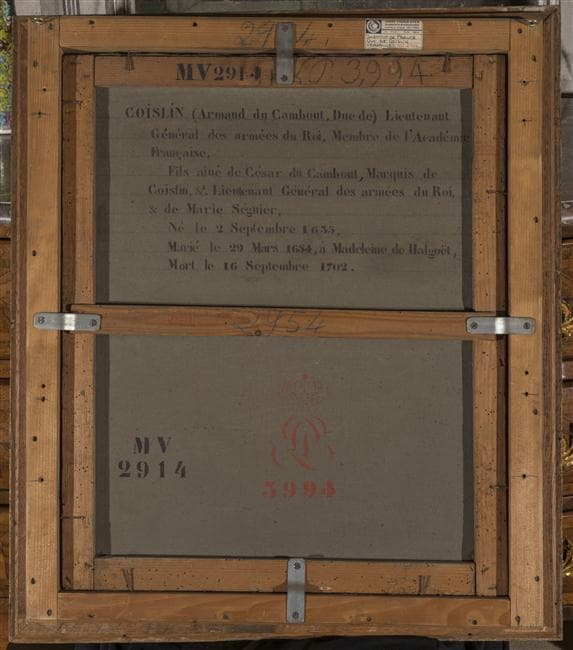 2914.
MV2914
3,994
COISLIN (Armand du Cambout, Duc de) Lieutenant
Général des armées du Roi, Membre de l'Académie
Française.
Fils aîné de César du Cambout, Marquis de
Coislin, & Lieutenant Général des armées du Roi,
& de Marie Séguier,
Né le 2 Septembre 1635.
Marié le 29 Mars 1654, à Madeleine de Halgoët,
Mort le 16 Septembre 1702.
2954
MV
2914
3994